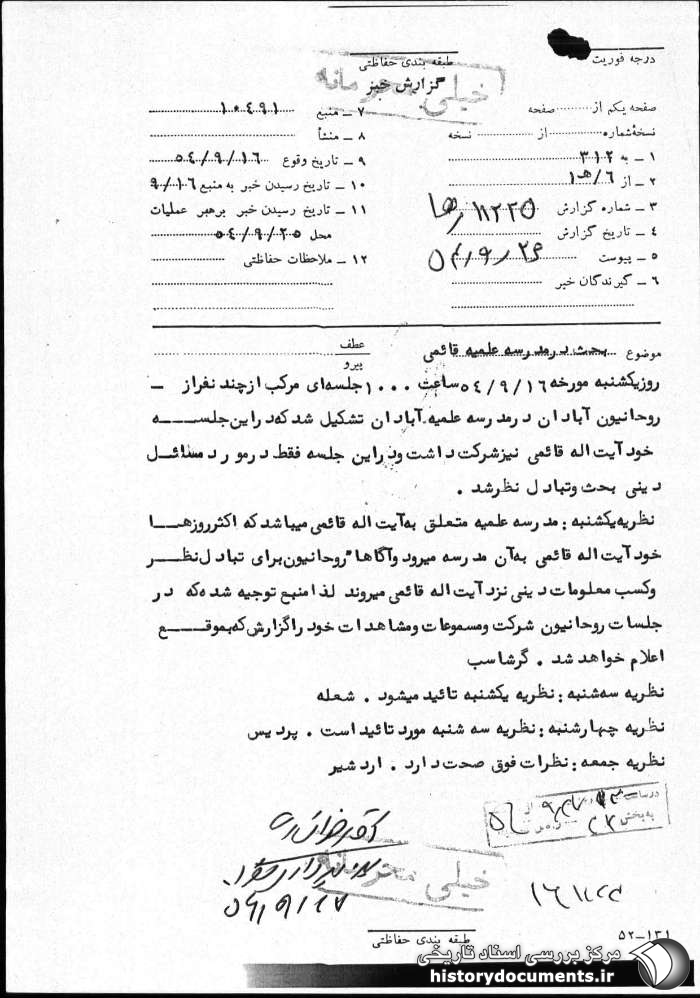 درجه فوریت
طبقه بندی حفاظتی
خیلی محرمانه
گزارش خبر
صفحه یکم از صفحه
نسخه شماره از نسخه
۱ – به ۳۱۲
۲ – از ۶/هـ۱
۳ – شماره گزارش ۱۱۲۲۵
۴ – تاریخ گزارش
۵ – پیوست
۶ – گیرندگان خبر
۷ – منبع ۱۰۴۹۱
۸ – منشأ
۹ – تاریخ وقوع ۵۴/۹/۱۶
۱۰ – تاریخ رسیدن خبر به منبع ۹/۱۶
۱۱ – تاریخ رسیدن خبر برهبر عملیات
محل ۵۴/۹/۲۵
۱۲ – ملاحظات حفاظتی
موضوع بحث در مدرسه علمیه قائمی
عطف
پیرو
روز یکشنبه مورخه ۵۴/۹/۱۶ ساعت ۱۰۰۰ جلسه‌ای مرکب از چند نفر از –
روحانیون آبادان در مدرسه علمیه آبادان تشکیل شد که در این جلسه
خود آیت اله قائمی نیز شرکت داشت و در این جلسه فقط در مورد مسائل
دینی بحث و تبادل نظر شد .
نظریه یکشنبه : مدرسه علمیه متعلق به آیت اله قائمی میباشد که اکثر روزها
خود آیت اله قائمی به آن مدرسه میرود وآگاها" روحانیون برای تبادل نظر
وکسب معلومات دینی نزد آیت اله قائمی میروند لذا منبع توجیه شده که در
جلسات روحانیون شرکت ومسموعات ومشاهدات خود را گزارش که بموقع
اعلام خواهد شد . گرشاسب
نظریه سه‌شنبه : نظریه یکشنبه تائید میشود . شعله
نظریه چهارشنبه : نظریه سه شنبه مورد تائید است . پردیس
نظریه جمعه : نظرات فوق صحت دارد . اردشیر
به بخش ۲۳
خیلی محرمانه
طبقه بندی حفاظتی
۵۲–۱۳۱
مرکز بررسی اسناد تاریخی
historydocuments.ir